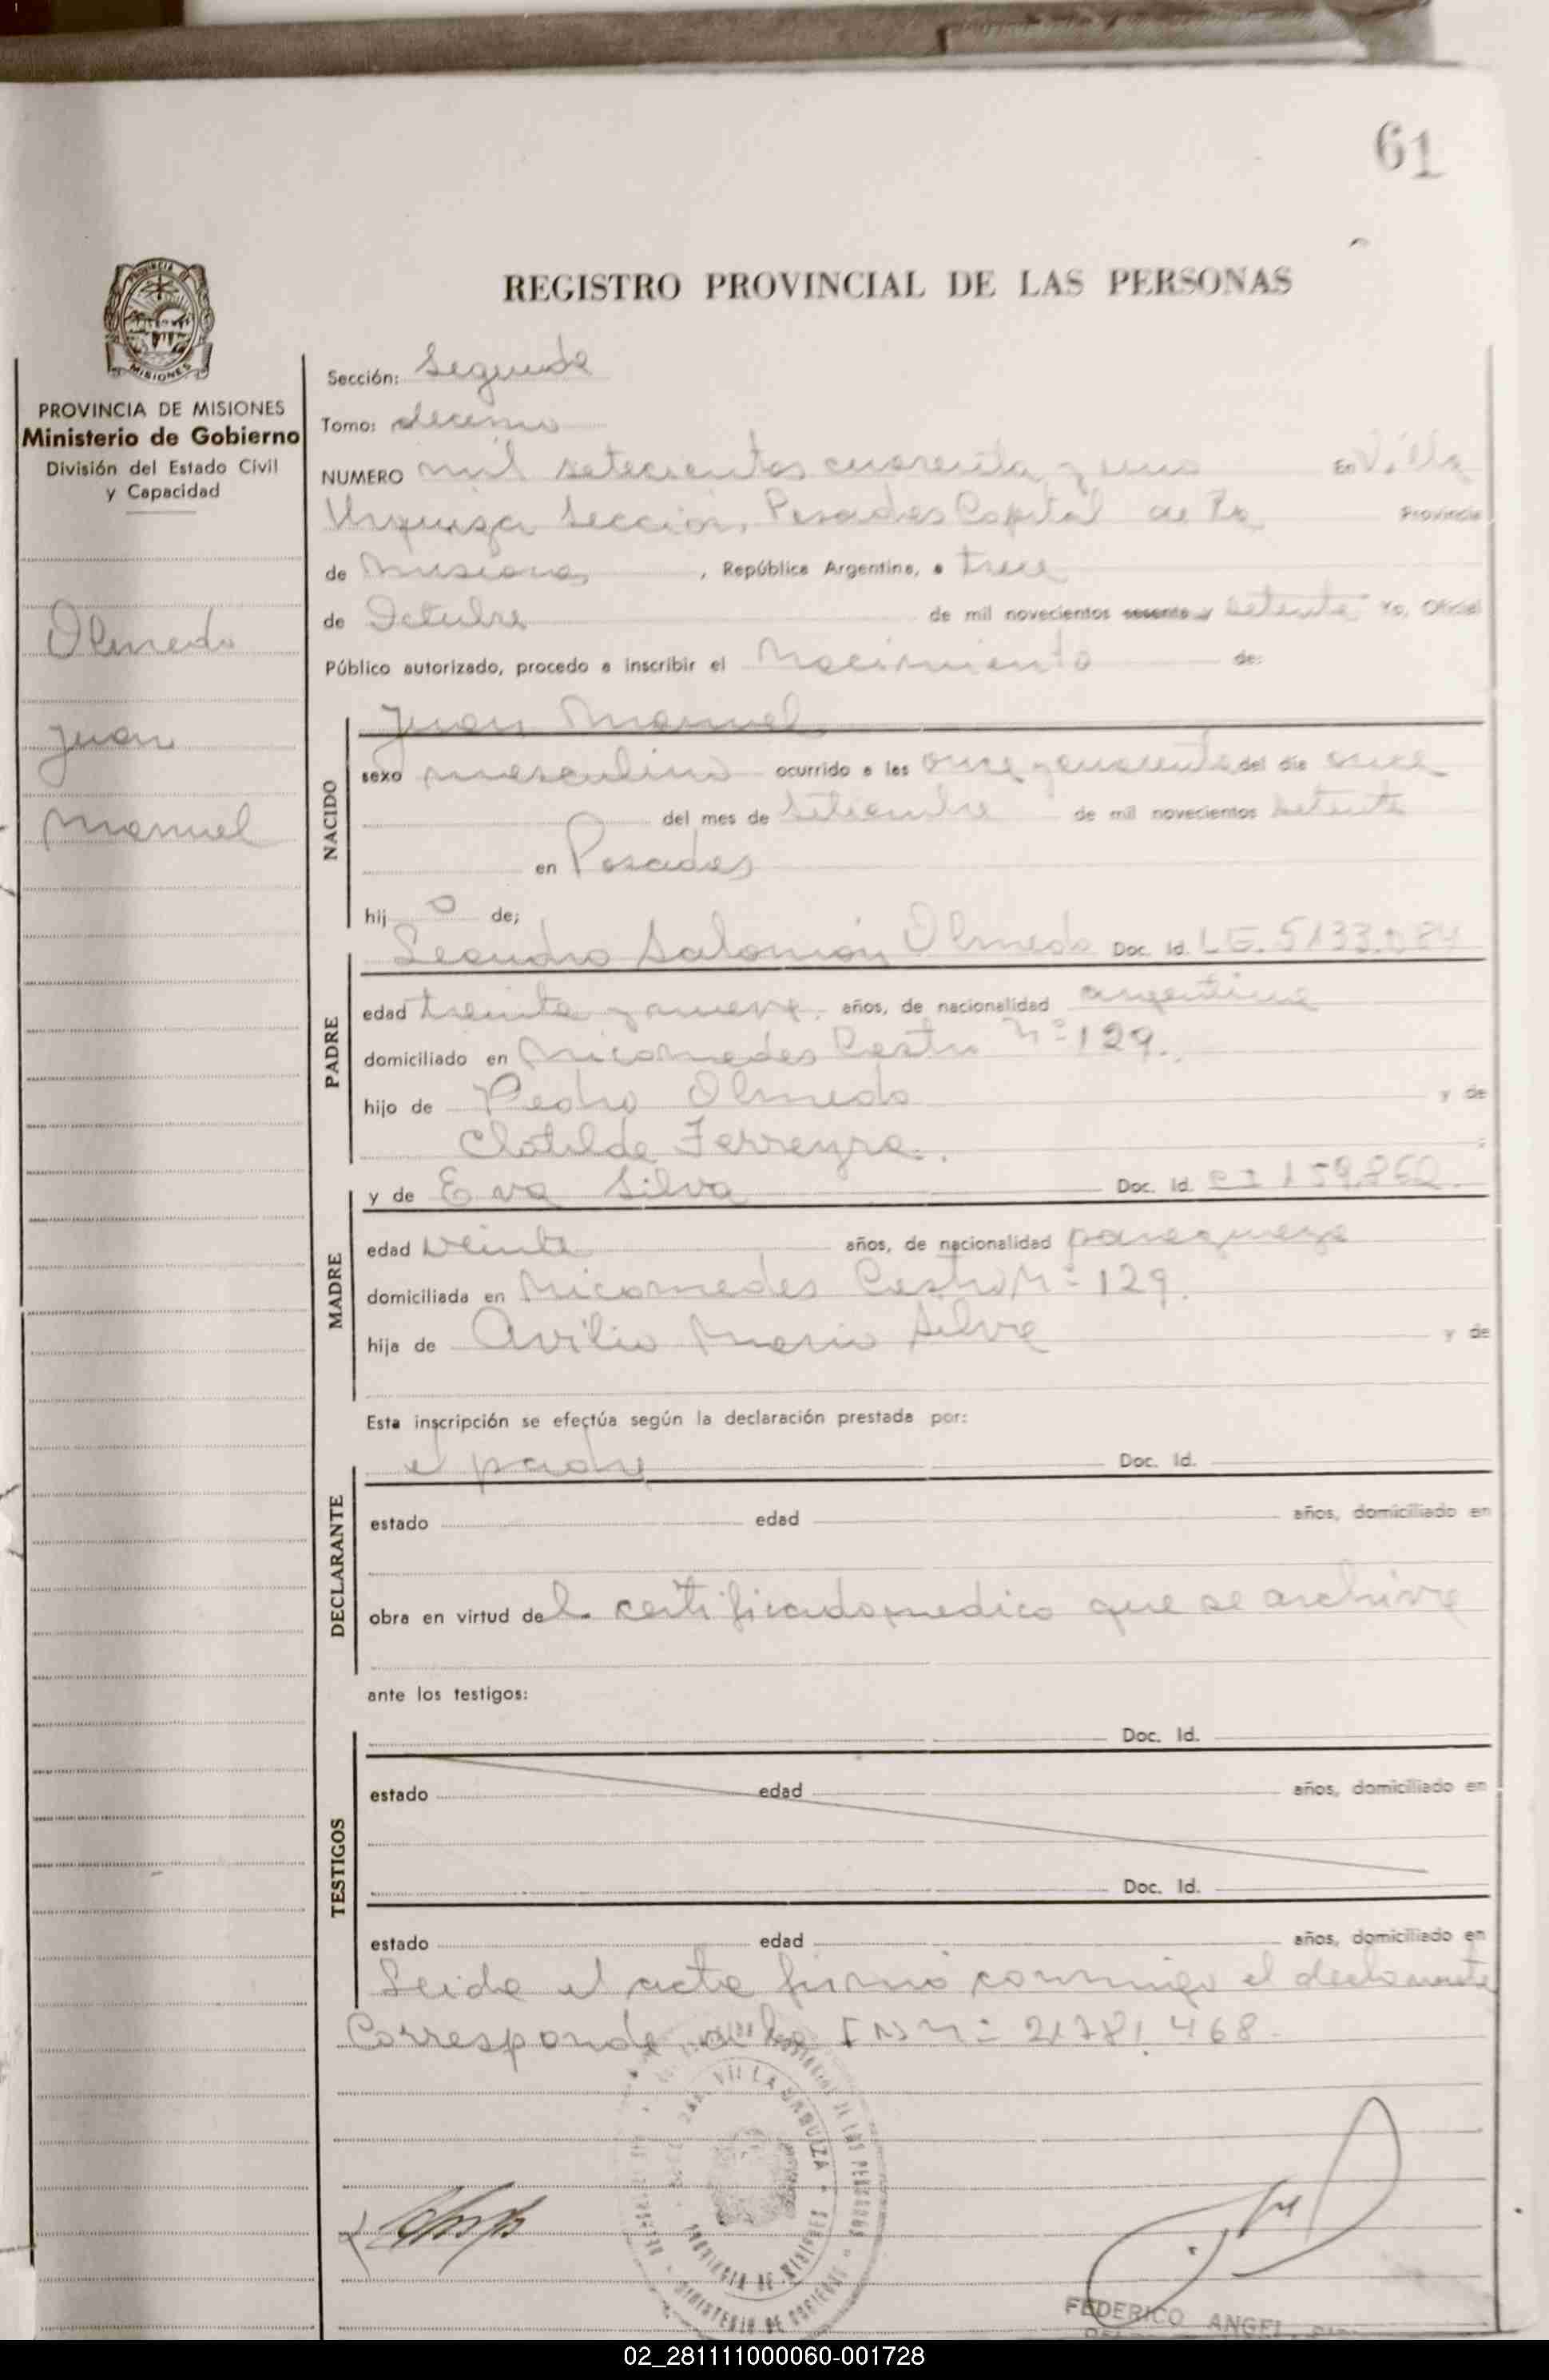 61
REGISTRO PROVINCIAL DE LAS PERSONAS
PROVINCIA DE MISIONES
Ministerio de Gobierno
División del Estado Civil
y Capacidad
Olmedo
Juan
Manuel
Sección: Segunda
Tomo: decimo
NUMERO mil setecientos cuarenta y uno En Villa
Urquiza Seccion, Posadas Capital de la Provincia
de Misiones, República Argentina, a trece
de Octubre de mil novecientos sesenta y setenta Yo, Oficial
Público autorizado, procedo a inscribir el Nacimiento de:
NACIDO
Juan Manuel
sexo masculino ocurrido a las once y cuarenta del día once
del mes de Setiembre de mil novecientos setenta
en Posadas
hijo de;
PADRE
Leandro Salomón Olmedo Doc. Id. LE. 5133.084
edad treinta y nueve. años, de nacionalidad argentina
domiciliado en Nicomedes Castro Nº 129.
hijo de Pedro Olmedo y de
Clotilde Ferreyra.
MADRE
y de Eva Silva Doc. Id. CI 159.862.
edad veinte años, de nacionalidad paraguaya
domiciliada en Nicomedes Castro Nº 129.
hija de Avilio Mario Silva y de
Esta inscripción se efectúa según la declaración prestada por:
DECLARANTE
el padre Doc. Id.
estado edad años, domiciliado en
obra en virtud del certificado medico que se archiva
ante los testigos:
TESTIGOS
Doc. Id.
estado edad años, domiciliado en
Doc. Id.
estado edad años, domiciliado en
Leida el acta firmó conmigo el declarante
Corresponde a la INNº 21781468.
VILLA URQUIZA
PROVINCIA DE MISIONES
MINISTERIO DE GOBIERNO
FEDERICO ANGEL
02_281111000060-001728